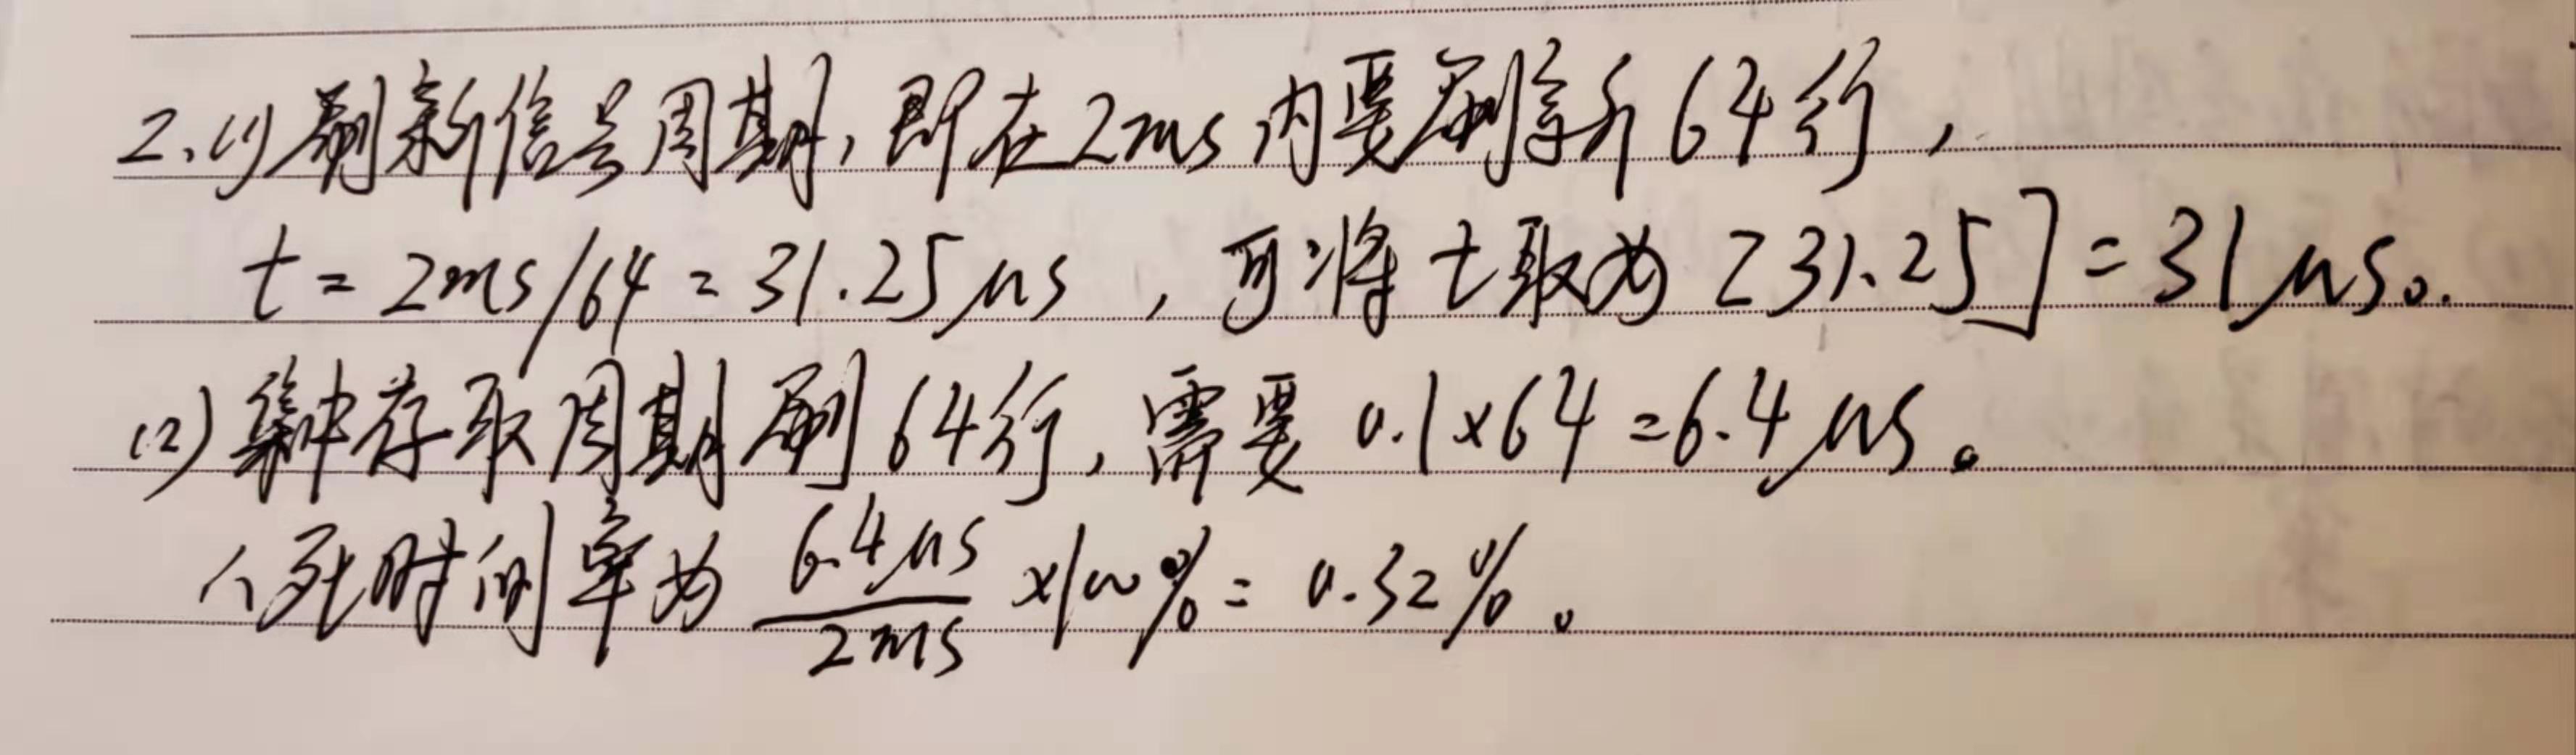 2.(1)刷新信号周期,即在2ms内要刷新64行,
t=2ms/64=31.25μs,可将t取为[31.25]=31μs。
(2)集中存取周期刷64行,需要0.1×64=6.4μs。
∴死时间率为 6.4μs/2ms ×100%=0.32%。